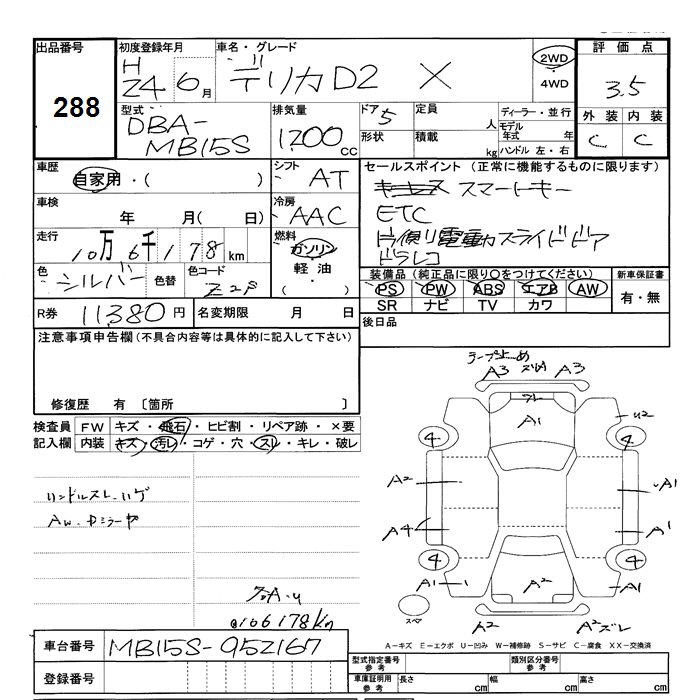 出品番号
288
初度登録年月
H 24 6月
車名・グレード
デリカD2 X
2WD
・
4WD
評価点
3.5
外装 内装
C C
型式
DBA-
MB15S
排気量
1200cc
ドア 5
形状
定員 人
積載 kg
ディーラー・並行
モデル年式 年
ハンドル 左・右
車歴
自家用・( )
シフト
AT
車検
年 月( 日)
冷房
AAC
走行
10万6千178km
燃料
ガソリン
軽油・
( )
色
シルバー
色替
色コード
Z2S
R券 11,380円
名変期限 月 日
セールスポイント (正常に機能するものに限ります)
キーレス スマートキー
ETC
片側電動スライドドア
ドラレコ
装備品(純正品に限り○をつけてください)
PS PW ABS エアB AW
SR ナビ TV カワ
新車保証書
有・無
後日品
注意事項申告欄(不具合内容等は具体的に記入して下さい)
修復歴 有 〔箇所 〕
検査員 FW キズ・飛石・ヒビ割・リペア跡・×要
記入欄 内装 キズ・汚レ・コゲ・穴・スレ・キレ・破レ
ハンドルスレ.ハゲ
AW.ドミラーキ
@106178km
テープ止め
A3 ズレ A3
A1
U2
4 4
A2 A1
A4 A1
4 4
A1 A1
A2
スペア
A2 A2ズレ
A-キズ E-エクボ U-凹み W-補修跡 S-サビ C-腐食 XX-交換済
車台番号 MB15S-952167
登録番号
型式指定番号 参考
類別区分番号 参考
車庫証明用 参考
長さ cm
幅 cm
高さ cm